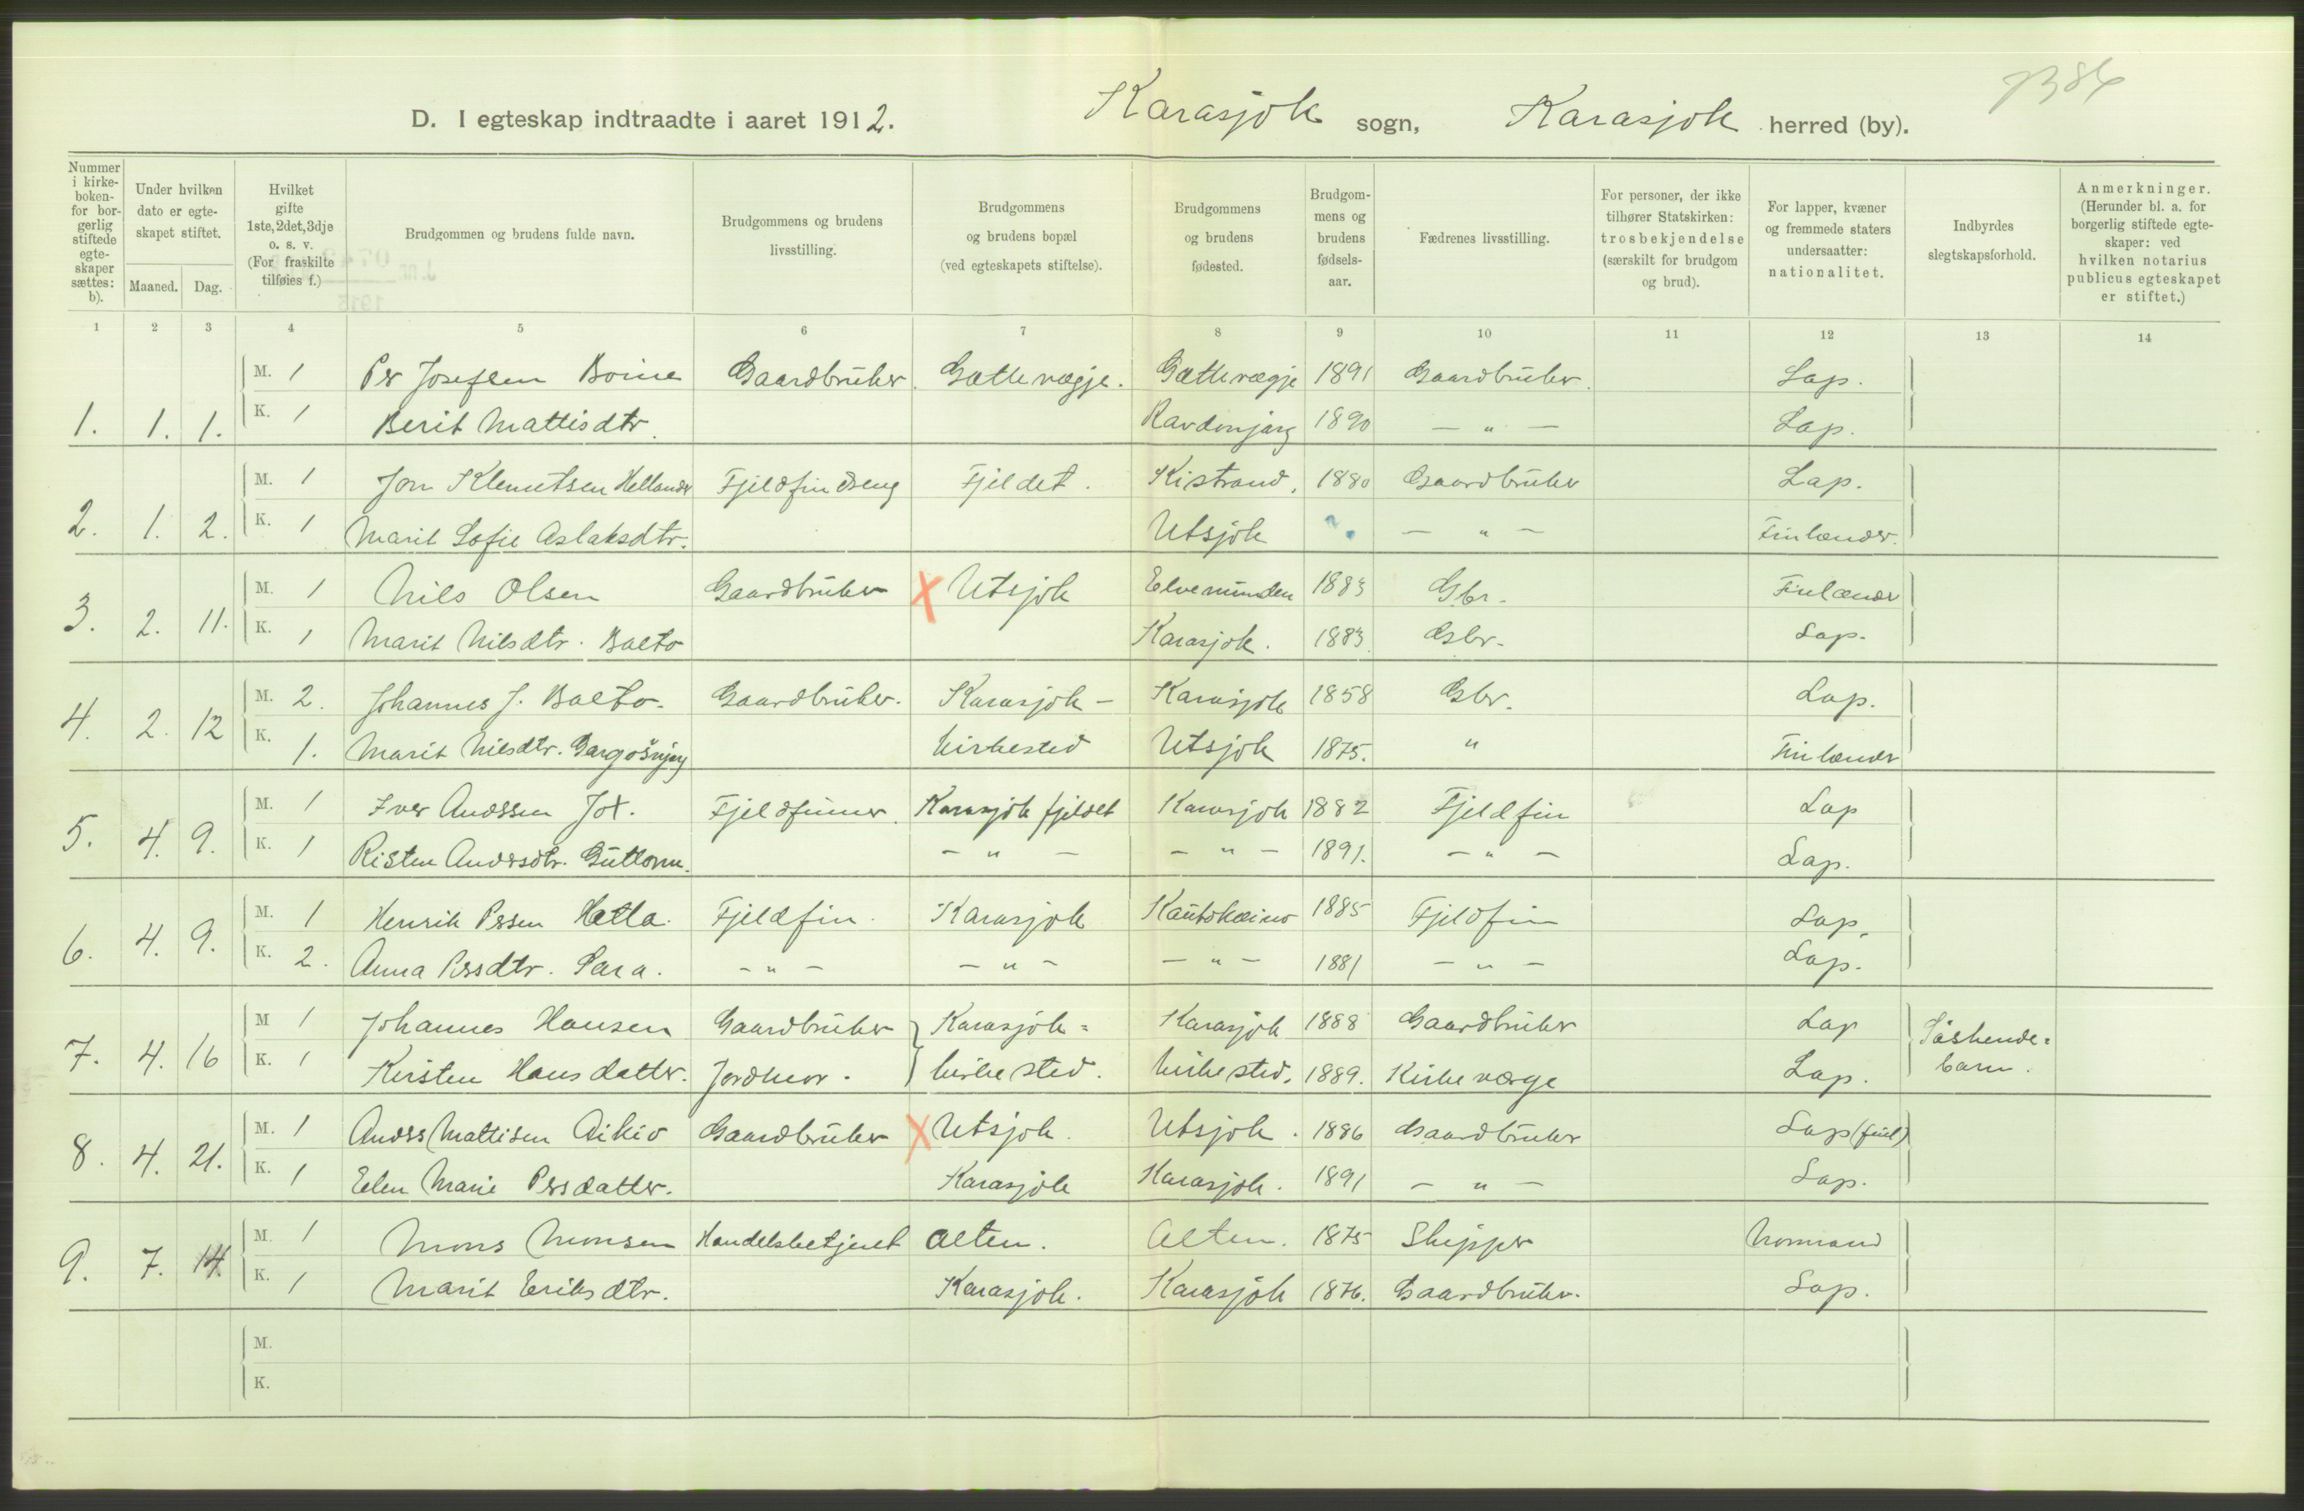 7386
D. I egteskap indtraadte i aaret 1912. Karasjok sogn, Karasjok herred (by).
Nummer i kirke-boken- for bor-gerlig stiftede egte-skaper sættes: b).
Under hvilken dato er egte-skapet stiftet.
Maaned. Dag.
Hvilket gifte 1ste, 2det, 3dje o. s. v. (For fraskilte tilføies f.)
Brudgommen og brudens fulde navn.
Brudgommens og brudens livsstilling.
Brudgommens og brudens bopæl (ved egteskapets stiftelse).
Brudgommens og brudens fødested.
Brudgom-mens og brudens fødsels-aar.
Fædrenes livsstilling.
For personer, der ikke tilhører Statskirken: trosbekjendelse (særskilt for brudgom og brud).
For lapper, kvæner og fremmede staters undersaatter: nationalitet.
Indbyrdes slegtskapsforhold.
Anmerkninger. (Herunder bl. a. for borgerlig stiftede egte-skaper: ved hvilken notarius publicus egteskapet er stiftet.)
1 2 3 4 5 6 7 8 9 10 11 12 13 14
M. 1 Per Josefsen Boine Gaardbruker. Gættevægje. Gættevægje 1891 Gaardbruker. Lap.
1. 1. 1. K. 1 Berit Mattisdtr. Ravdonjarg 1890 — " — Lap.
M. 1 Jon Klemetsen Hellander Fjeldfin Fjeldet. Kistrand. 1880 Gaardbruker Lap.
2. 1. 2. K. 1 Marit Sofie Aslaksdtr. Utsjok ? — " — Finlænder.
M. 1 Nils Olsen Gaardbruker X Utsjok Elvemunden 1883 Gbr. Finlænder
3. 2. 11. K. 1 Marit Nilsdtr. Balto Karasjok. 1883 Gbr. Lap.
M. 2. Johannes J. Balto. Gaardbruker. Karasjok - Karasjok 1858 Gbr. Lap.
4. 2. 12 K. 1. Marit Nilsdtr. kirkested Utsjok 1875. " Finlænder
M. 1 Iver Anderssen Jox. Fjeldfinner. Karasjok fjeldet Karasjok 1882 Fjeldfin Lap
5. 4. 9. K. 1 Risten Andersdtr. Guttorm. — " — — " — 1891. — " — Lap.
M. 1 Henrik Persen Hætta. Fjeldfin. Karasjok Kautokeino 1885 Fjeldfin Lap.
6. 4. 9. K. 2. Anna Persdtr. Sara. — " — — " — — " — 1881 — " — Lap.
M 1 Johannes Hansen Gaardbruker Karasjok= Karasjok 1888 Gaardbruker Lap Søskende=
7. 4. 16 K. 1 Kirsten Hansdatter. Jordmor. kirkested. kirkested. 1889. Kirkeværge Lap. barn.
M. 1 Anders Mattisen Aikio Gaardbruker X Utsjok. Utsjok. 1886 Gaardbruker Lap (finl)
8. 4. 21. K. 1 Elen Marie Persdatter. Karasjok Karasjok. 1891 — " — Lap.
M. 1 Mons Monsen Handelsbetjent Alten. Alten. 1875 Skipper Normand
9. 7. 14. K. 1 Marit Eriksdtr. Karasjok. Karasjok 1876. Gaardbruker. Lap.
M.
K.